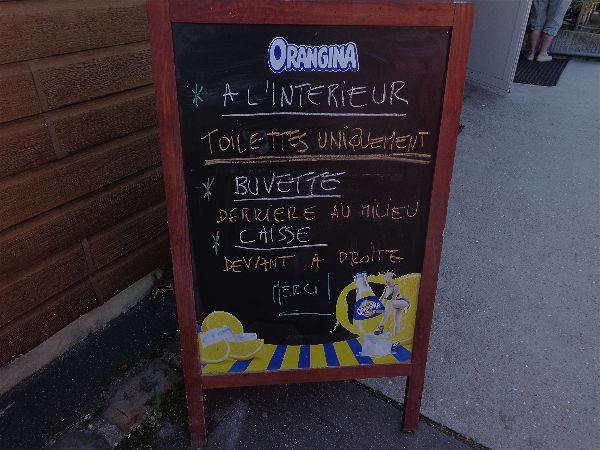 ORANGINA
* A L'INTERIEUR
TOILETTES UNIQUEMENT
* BUVETTE
DERRIERE AU MILIEU
* CAISSE
DEVANT A DROITE
MERCI!